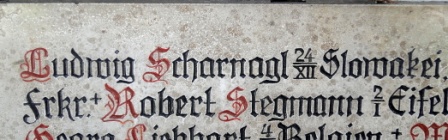 Ludwig Scharnagl 24/XII Slowakei
Frkr.+ Robert Stegmann 2/I Eifel
Georg Liebhart 4 Belgien +